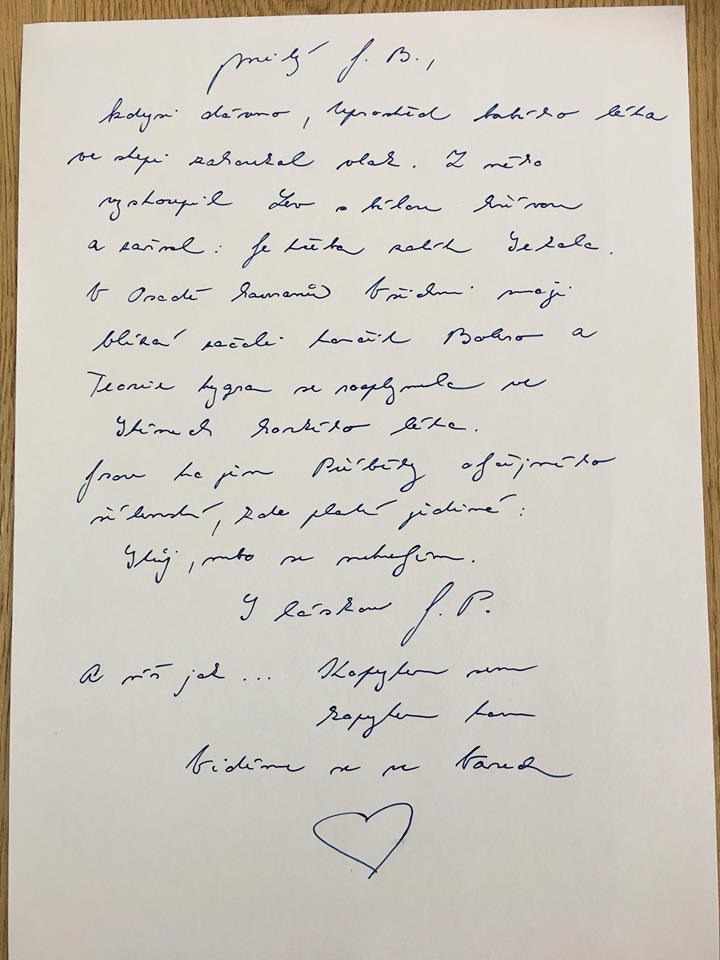 milý J. B.,
kdysi dávno, uprostřed babího léta
ve stepi zahoukal vlak. Z něho
vystoupil Lev s bílou hřívou
a zařval: Je třeba zabít Sekala.
V Osadě havranů všichni moji
blízcí začali tančit Bolero a
Teorie tygra se rozplynula ve
Stínech horkého léta.
Jsou to jen Příběhy obyčejného
šílenství, zde platí jediné:
Stůj, nebo se netrefím.
S láskou J. P.
A víš jak... Kopytem sem
kopytem tam
Vidíme se ve Varech